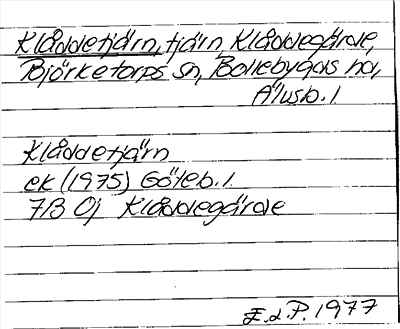 Klåddetjärn, tjärn, Klåddegärde,
Björketorps sn, Bollebygds hd,
Älvsb. l.
Klåddetjärn
ek (1975) Göteb. l.
7B 0j Klåddegärde
F.d.P. 1977